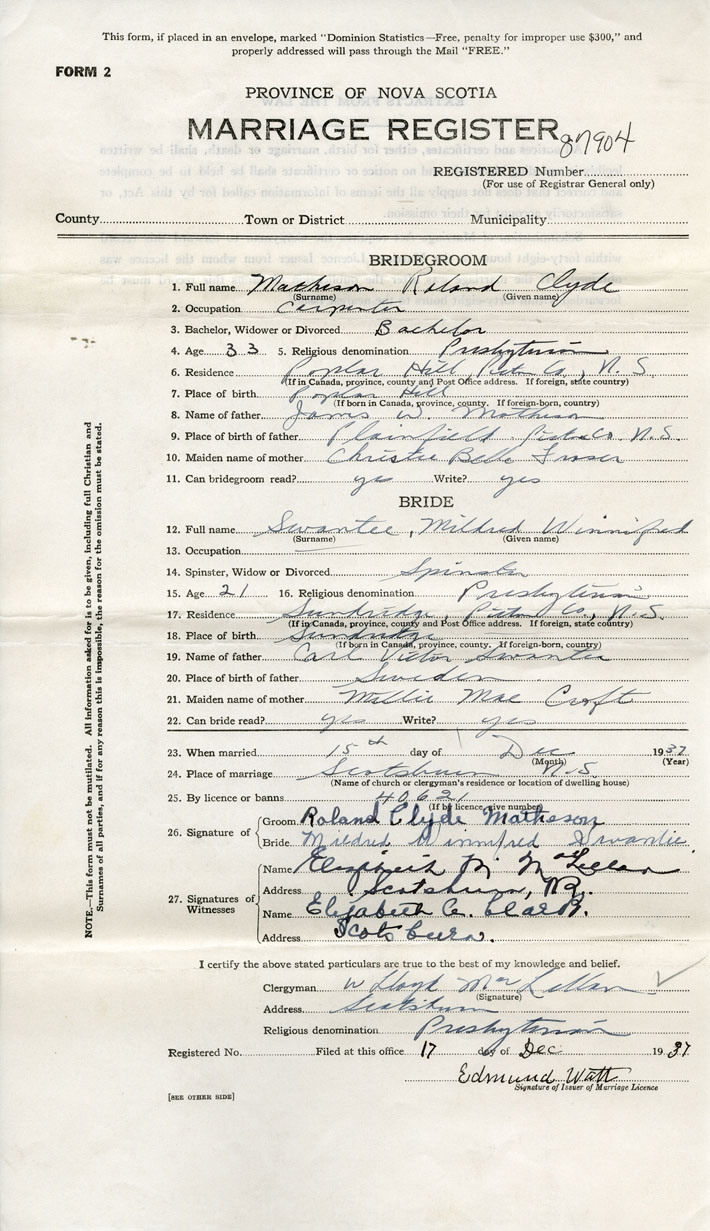 This form, if placed in an envelope, marked "Dominion Statistics—Free, penalty for improper use $300," and
properly addressed will pass through the Mail "FREE."
FORM 2
PROVINCE OF NOVA SCOTIA
MARRIAGE REGISTER
87904
REGISTERED Number
(For use of Registrar General only)
County Town or District Municipality
BRIDEGROOM
1. Full name Matheson Roland Clyde
(Surname) (Given name)
2. Occupation Carpenter
3. Bachelor, Widower or Divorced Bachelor
4. Age 33 5. Religious denomination Presbyterian
6. Residence Poplar Hill, Pictou Co., N.S.
(If in Canada, province, county and Post Office address. If foreign, state country)
7. Place of birth Poplar Hill
(If born in Canada, province, county. If foreign-born, country)
8. Name of father James W. Matheson
9. Place of birth of father Plainfield Pictou Co N.S.
10. Maiden name of mother Christie Belle Fraser
11. Can bridegroom read? yes Write? yes
BRIDE
12. Full name Swantee, Mildred Winnifred
(Surname) (Given name)
13. Occupation
14. Spinster, Widow or Divorced Spinster
15. Age 21 16. Religious denomination Presbyterian
17. Residence Sundridge, Pictou Co., N.S.
(If in Canada, province, county and Post Office address. If foreign, state country)
18. Place of birth Sundridge
(If born in Canada, province, county. If foreign-born, country)
19. Name of father Carl Victor Swantee
20. Place of birth of father Sweden
21. Maiden name of mother Millie Mae Croft
22. Can bride read? yes Write? yes
23. When married 15th day of Dec 1937
(Month) (Year)
24. Place of marriage Scotsburn N.S.
(Name of church or clergyman's residence or location of dwelling house)
25. By licence or banns 40621
(If by licence, give number)
26. Signature of
Groom Roland Clyde Matheson
Bride Mildred Winnifred Swantee
27. Signatures of Witnesses
Name M. MacLellan
Address Scotsburn, N.S.
Name Elizabeth C. Clark
Address Scotsburn.
I certify the above stated particulars are true to the best of my knowledge and belief.
Clergyman W Lloyd MacLellan
(Signature)
Address Scotsburn
Religious denomination Presbyterian
Registered No. Filed at this office 17 day of Dec 1937
Edmund Watt
Signature of Issuer of Marriage Licence
[SEE OTHER SIDE]
NOTE.—This form must not be mutilated. All information asked for is to be given, including full Christian and
Surnames of all parties, and if for any reason this is impossible, the reason for the omission must be stated.